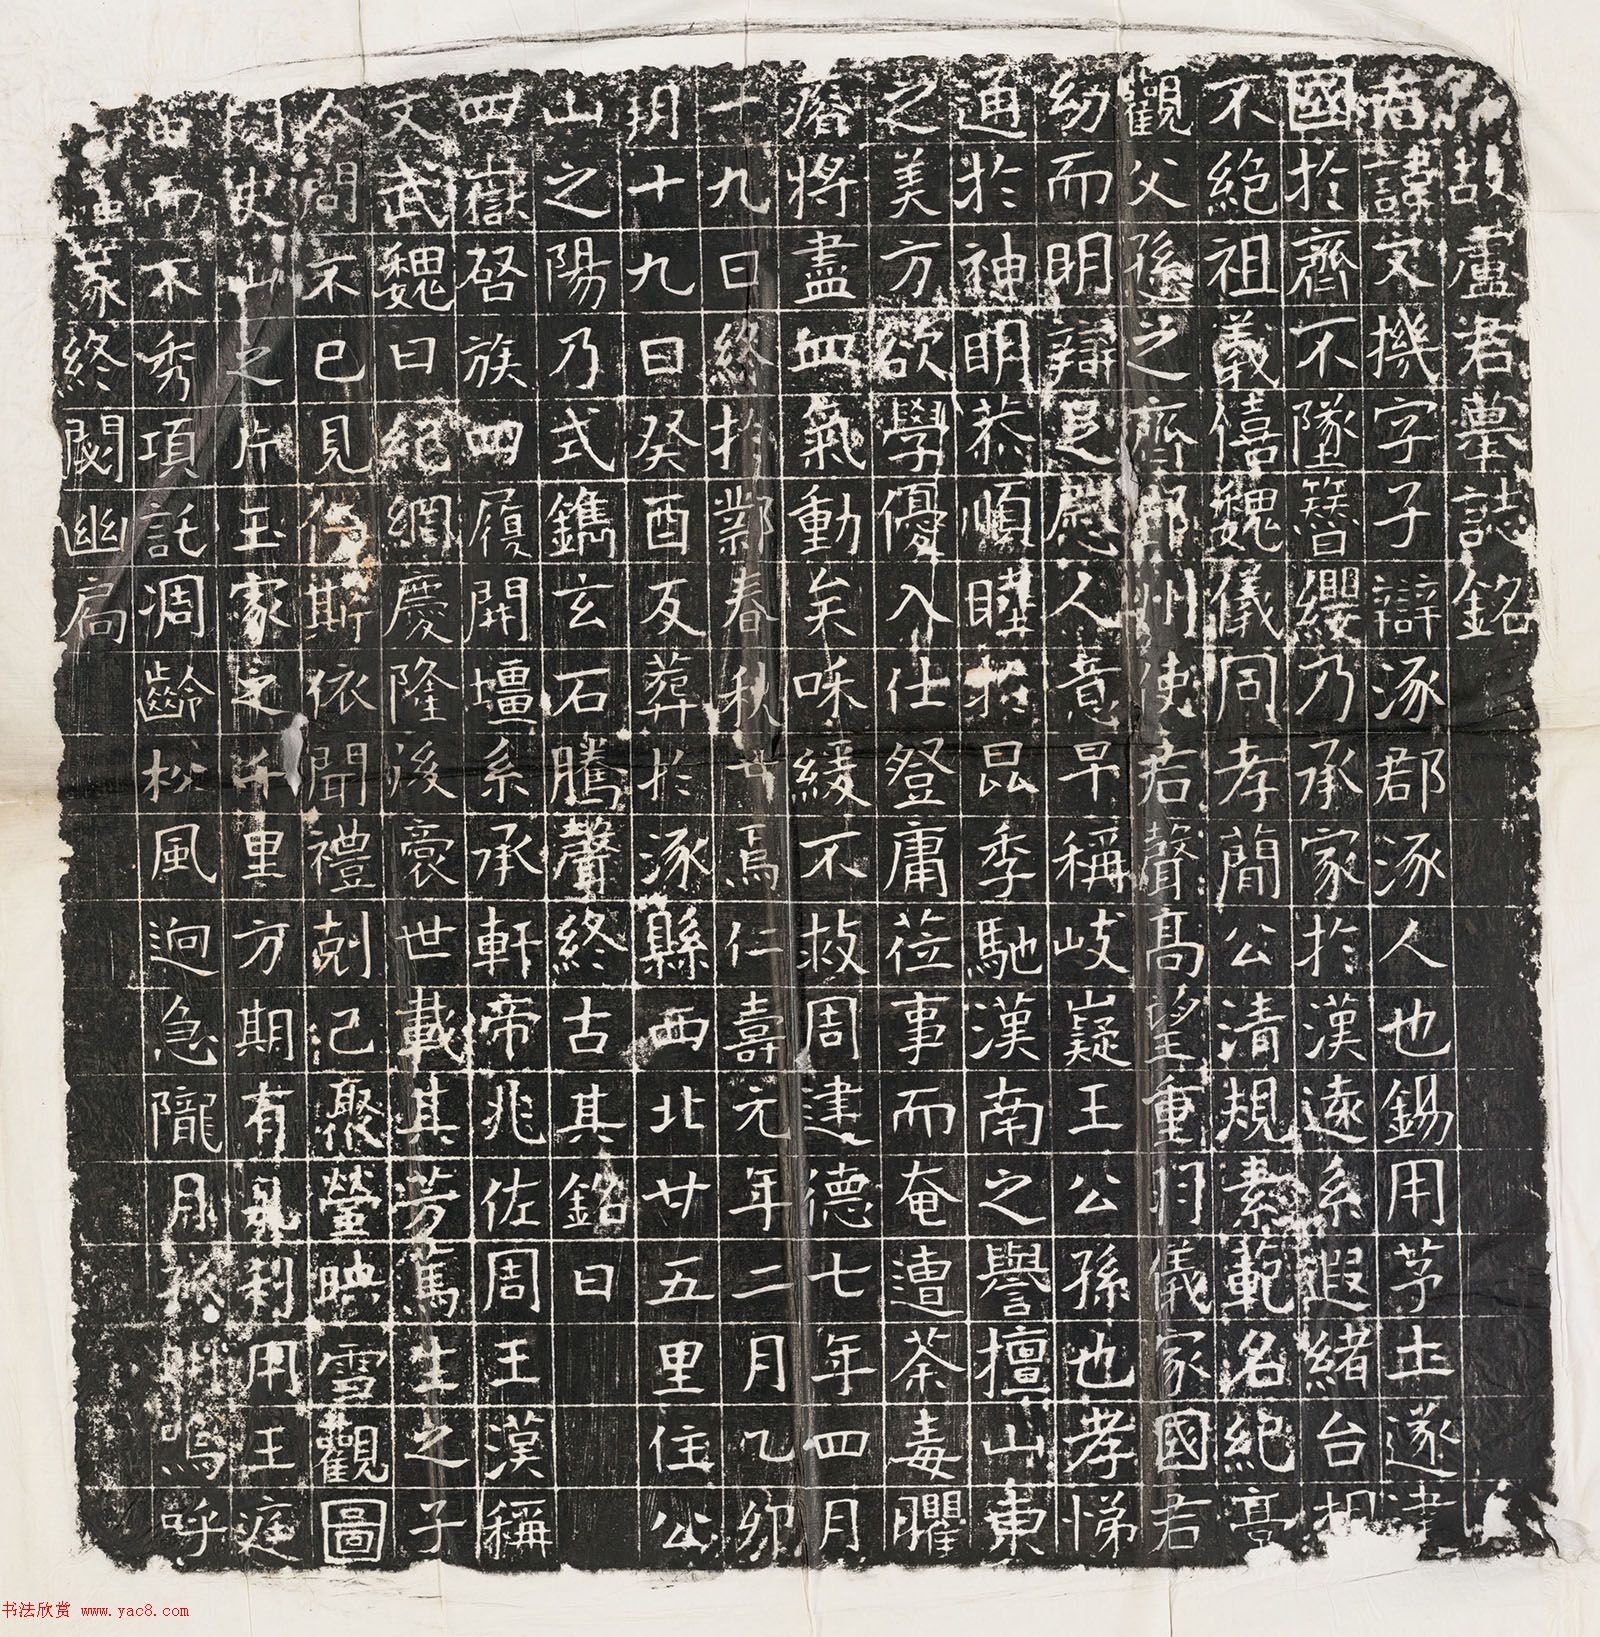 故盧君墓誌銘
君諱文機字子辯涿郡涿人也錫用茅土遂建
國於齊不墜簪纓乃承家於漢遠系遐緒台相
不絕祖義僖魏儀同孝簡公清規素範名紀亭
觀父孫之齊郢州使君聲高望重羽儀家國君
幼而明辯邑慰人意早稱岐嶷王公孫也孝悌
通於神明恭順睦於昆季馳漢南之譽擅山東
之美方欲學優入仕登庸莅事而奄遭荼毒臞
瘠將盡血氣動矣咊緩不救周建德七年四月
十九日終於鄴春秋廿焉仁壽元年二月乙卯
朔十九日癸酉反葬於涿縣西北廿五里住公
山之陽乃式鐫玄石騰聲終古其銘曰
四嶽啓族四履開壃系承軒帝兆佐周王漢稱
文武魏曰紀網慶隆後裔世載其芳篤生之子
令問不已見仁斯依聞禮剋己聚螢映雪觀圖
閱史山之片玉家之千里方期有禮利用王庭
苗而不秀項託凋齡松風迥急隴月孤明嗚呼
篆終閟幽扃
书法欣赏 www.yac8.com